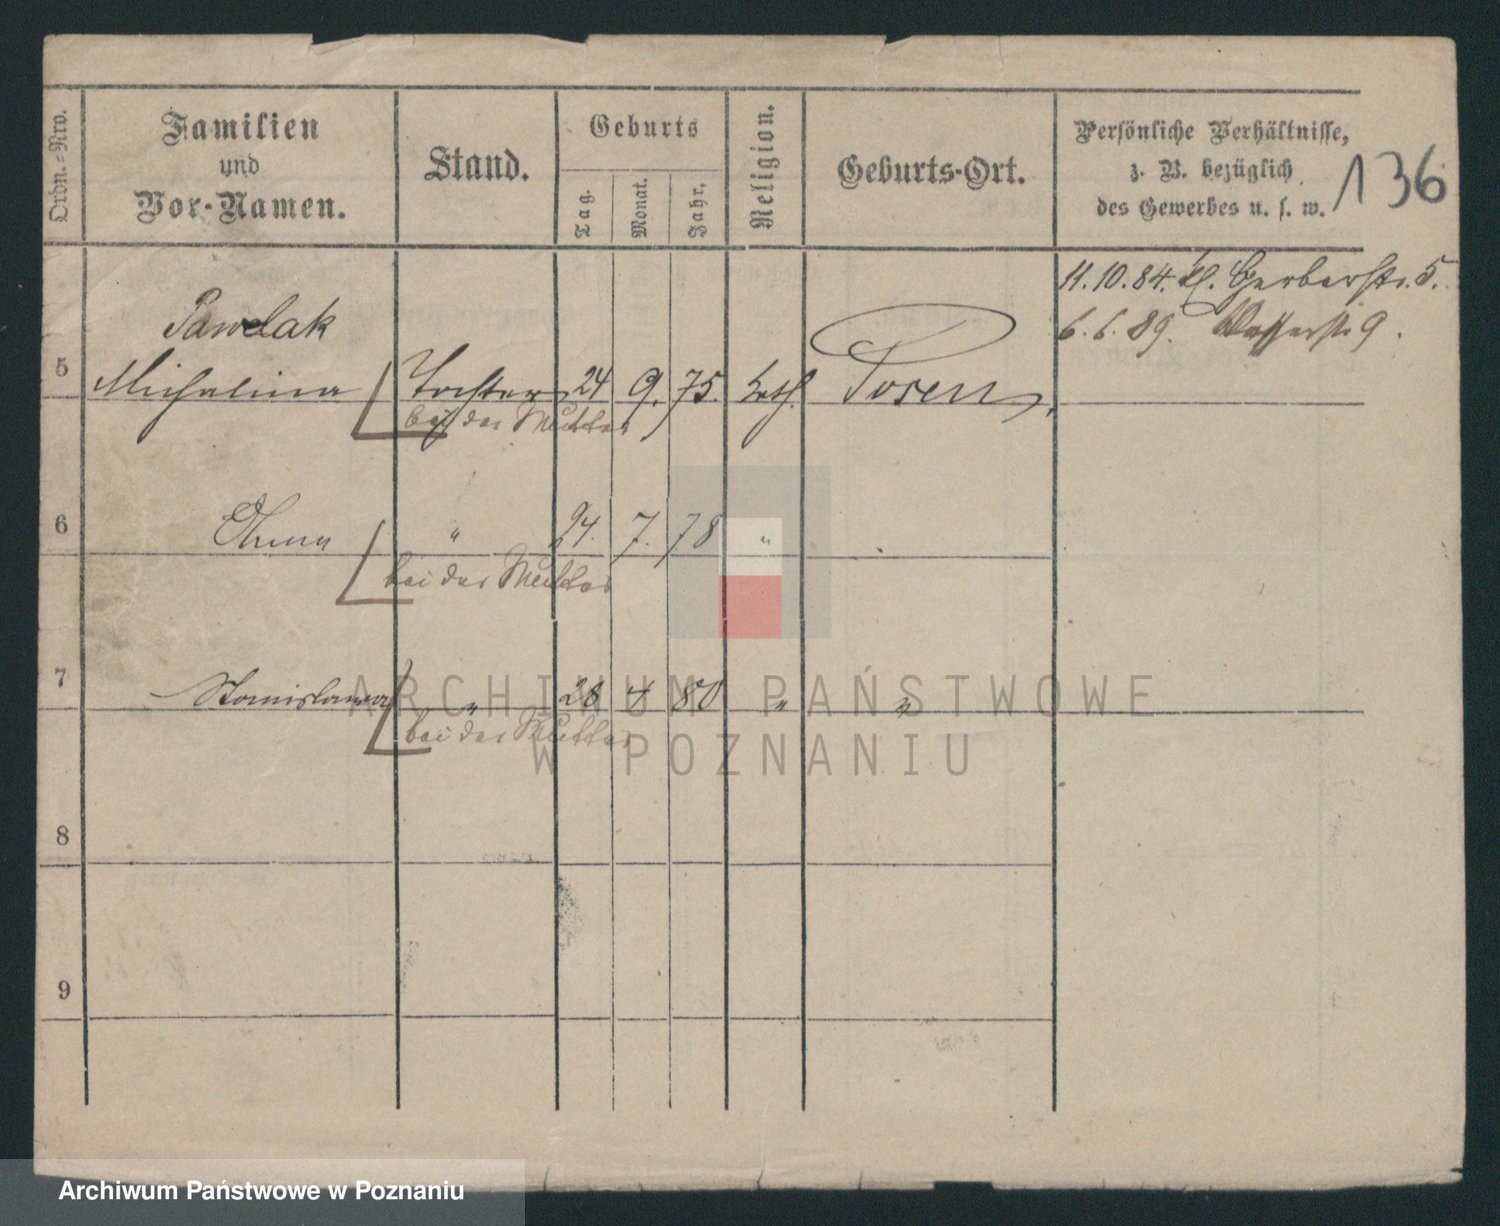 Ordn.=Nro.
Familien
und
Vor-Namen.
Stand.
Geburts
Tag.
Monat.
Jahr.
Religion.
Geburts-Ort.
Persönliche Verhältnisse,
z. B. bezüglich
des Gewerbes u. s. w.
136
11.10.84. kl. Gerberstr. 5.
6.6.89. Wasserstr. 9.
Pawelak
5 Michalina Tochter 24 9. 75. kath. Posen
bei der Mutter
6 " 24. 7. 78 "
bei der Mutter
7 Stanislawa " 28 4 80 " "
bei der Mutter
8
9
ARCHIWUM PAŃSTWOWE
W POZNANIU
Archiwum Państwowe w Poznaniu